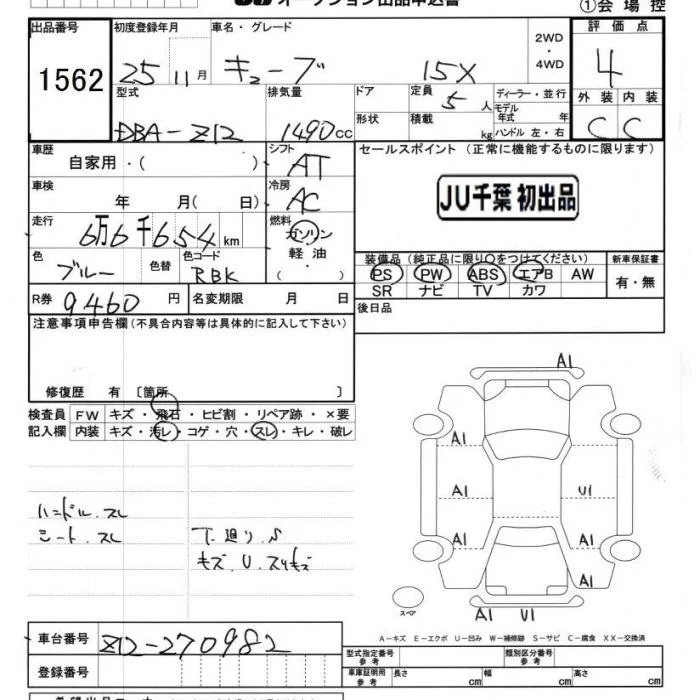 オークション出品申込書
①会場控
出品番号 初度登録年月 車名・グレード 2WD・4WD 評価点
1562 25 11月 キューブ 15X 4
型式 排気量 ドア 定員 5人 ディーラー・並行 外装 内装
DBA-Z12 1490cc 形状 積載 kg モデル年式 年 ハンドル 左・右 C C
車歴 自家用・( ) シフト AT セールスポイント (正常に機能するものに限ります)
車検 年 月( 日) 冷房 AC JU千葉 初出品
走行 6万6千654km 燃料 ガソリン 軽油 ・( )
色 ブルー 色替 色コード RBK 装備品 (純正品に限り○をつけてください) 新車保証書
PS PW ABS エアB AW 有・無
SR ナビ TV カワ
R券 9460円 名変期限 月 日 後日品
注意事項申告欄 (不具合内容等は具体的に記入して下さい)
修復歴 有 〔箇所 〕
検査員 FW キズ・飛石・ヒビ割・リペア跡・×要
記入欄 内装 キズ・汚レ・コゲ・穴・スレ・キレ・破レ
A1
A1
A1 U1
A1 A1
A1
A1 U1
スペア
ハンドル.スレ
シート.スレ
下廻り.S
キズ.U.スリキズ
A-キズ E-エクボ U-凹み W-補修跡 S-サビ C-腐食 XX-交換済
車台番号 Z12-270982
登録番号
型式指定番号 参考 類別区分番号 参考
車庫証明用 参考 長さ cm 幅 cm 高さ cm